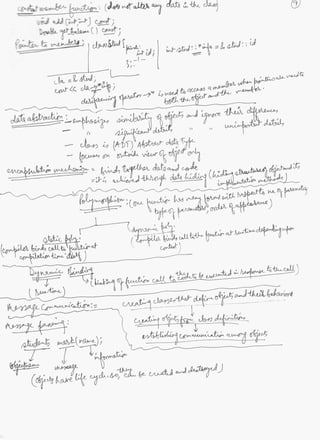 const member function: (does not alter any data in the class)
void add(int, int) const;
Double getbalance() const;
Pointer to members: class stud { public:
int id;
};
int stud::*ip = & stud::id
cout << *ip;
dereferencing operator →* is used to access a member when pointers are used to
both the object and the member.
data abstraction: emphasizes similarity of objects and ignore their differences,
" significant details " unimportant details
- class is (ADT) abstract data type
- focuses on outside view of object only
encapsulation mechanism = binds together data and code
It is achieved through data hiding (hiding structures of object and its
implementation methods)
Polymorphism: (one function has many forms with respect to no of parameters,
type of parameters, order of appearance)
static poly:
(compiler binds call to function at
compilation time itself)
dynamic poly.
(compiler binds call to the function at runtime depending upon
context)
Dynamic Binding
(run time)
(linking of function call to code to be executed in response to the call)
Message Communication:
creating classes that define objects and their behaviour
Message passing:
creating objects from class definition
establishing communication among objects
students mark(name);
object name message information
(objects have life cycle so, they can be created and destroyed)